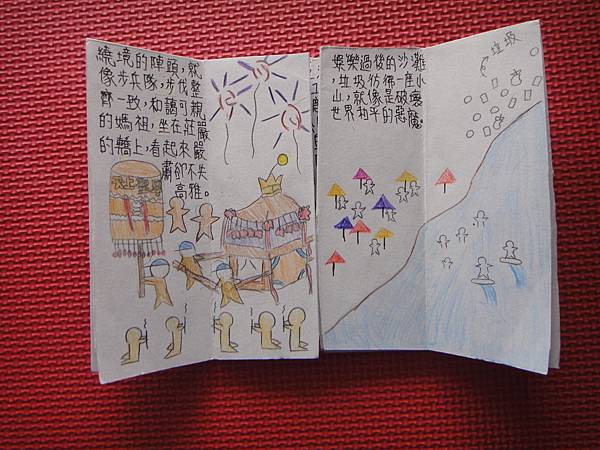 繞境的陣頭，就
像步兵隊，步伐整
齊一致，和藹可親
的媽祖，坐在莊嚴
的轎上，看起來嚴
肅卻不失
高雅。
娛樂過後的沙灘
，垃圾彷彿一座小
山，就像是破壞
世界和平的惡魔。
垃圾
天上聖母